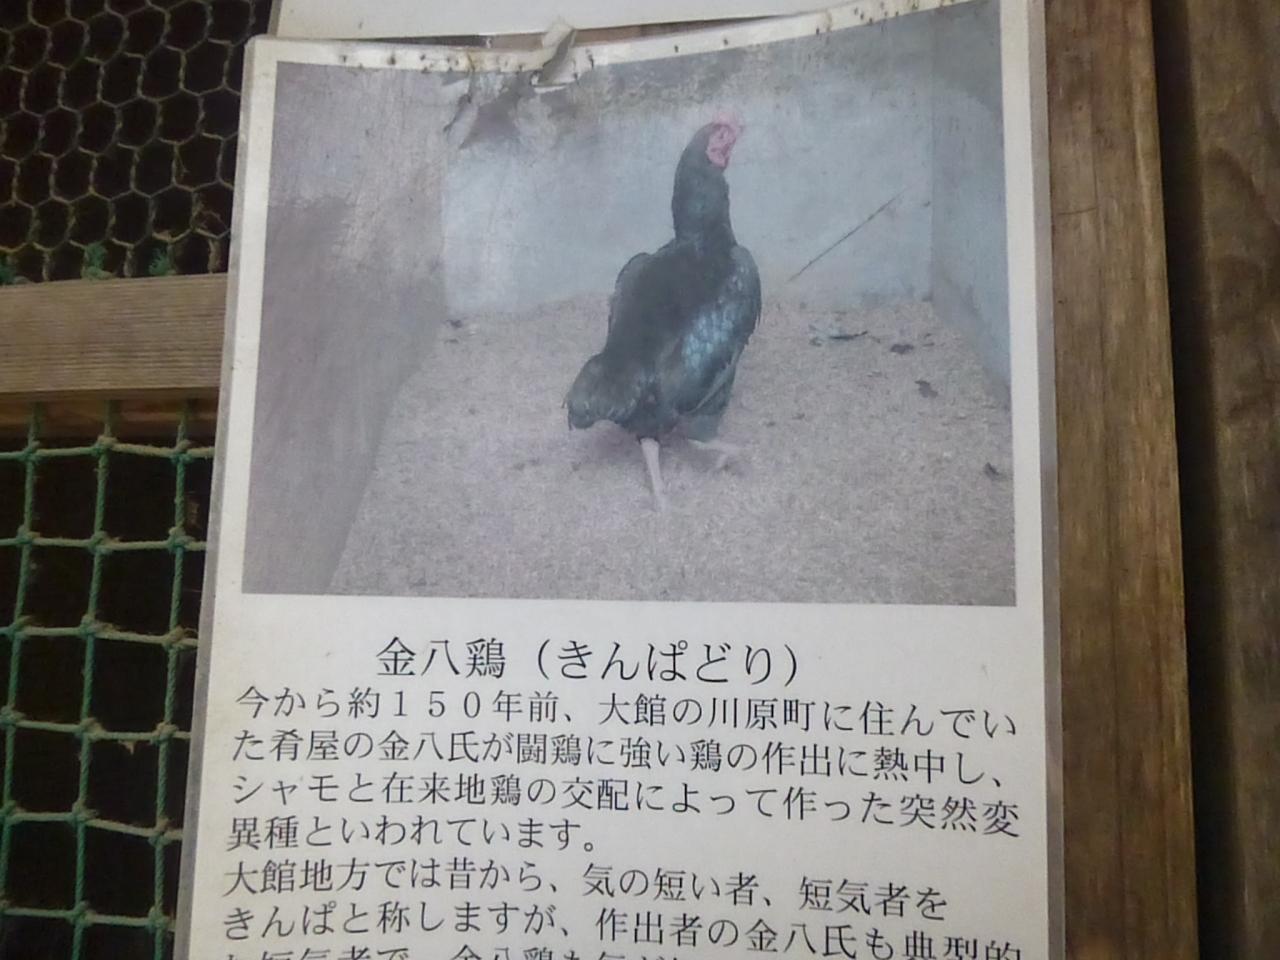 金八鶏（きんぱどり）
今から約１５０年前、大館の川原町に住んでい
た肴屋の金八氏が闘鶏に強い鶏の作出に熱中し、
シャモと在来地鶏の交配によって作った突然変
異種といわれています。
大館地方では昔から、気の短い者、短気者を
きんぱと称しますが、作出者の金八氏も典型的